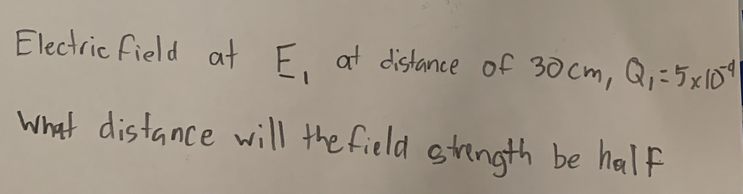 Electric field at E₁ at distance of 30cm, Q₁=5x10⁻⁹
What distance will the field strength be half